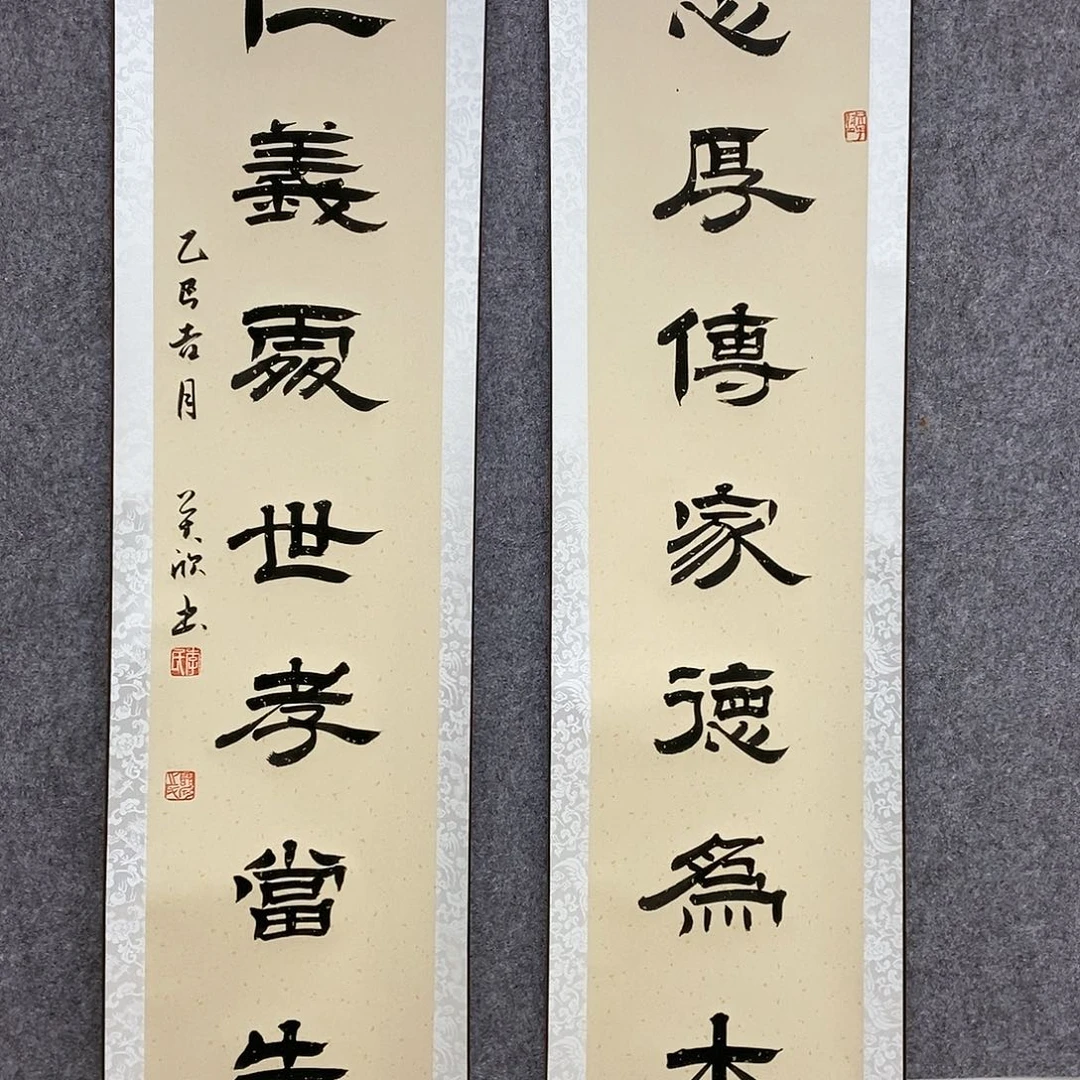 忠厚傳家德爲本
仁義處世孝當先
乙巳吉月 美欣书